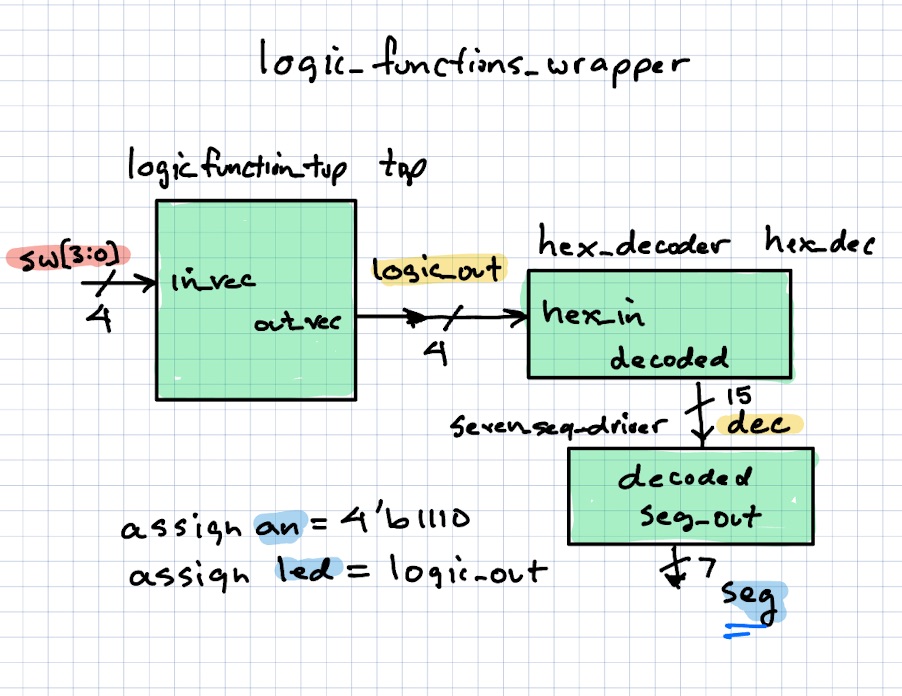 logic_functions_wrapper
logic function_top top
sw[3:0]
4
in_vec
out_vec
logic_out
4
hex_decoder hex_dec
hex_in
decoded
15
dec
seven_seg_driver
decoded
seg_out
7
seg
assign an = 4'b1110
assign led = logic_out